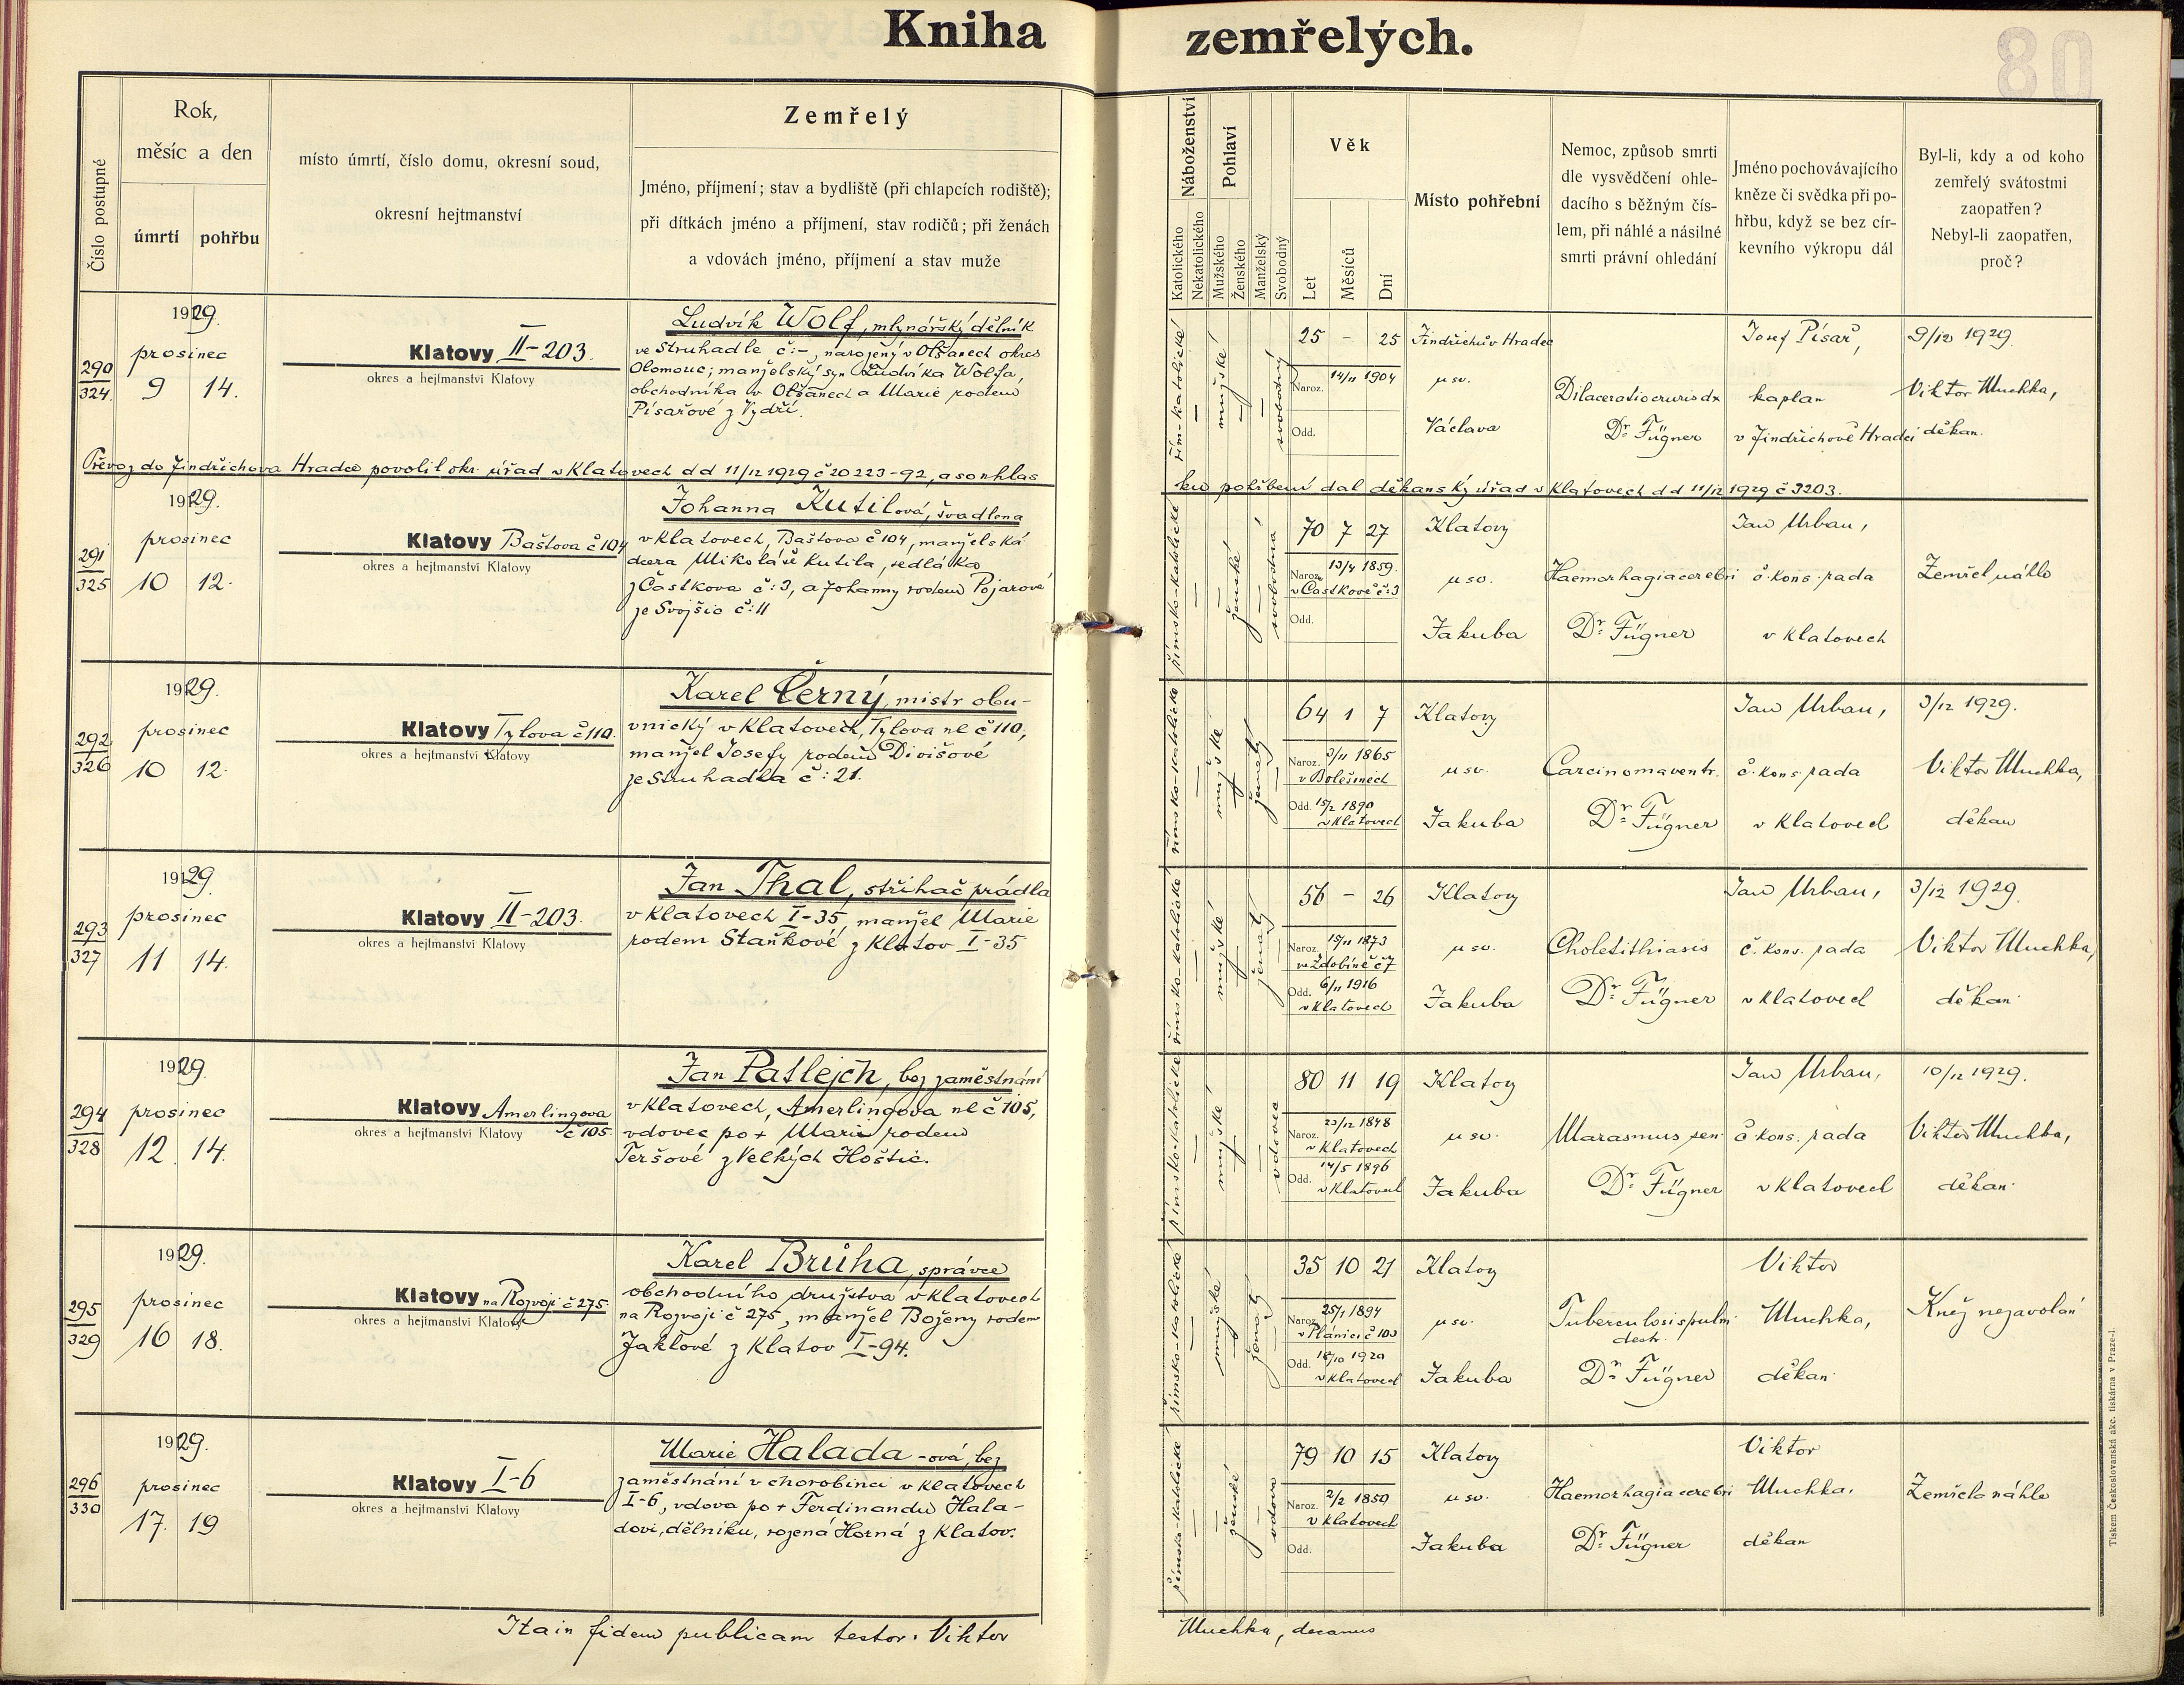 Kniha zemřelých.
80
Číslo postupné
Rok,
měsíc a den
úmrtí
pohřbu
místo úmrtí, číslo domu, okresní soud,
okresní hejtmanství
Zemřelý
Jméno, příjmení; stav a bydliště (při chlapcích rodiště);
při dítkách jméno a příjmení, stav rodičů; při ženách
a vdovách jméno, příjmení a stav muže
Náboženství
Katolického
Nekatolického
Pohlaví
Mužského
Ženského
Manželský
Svobodný
Věk
Let
Měsíců
Dní
Místo pohřební
Nemoc, způsob smrti
dle vysvědčení ohle-
dacího s běžným čís-
lem, při náhlé a násilné
smrti právní ohledání
Jméno pochovávajícího
kněze či svědka při po-
hřbu, když se bez cír-
kevního výkropu dál
Byl-li, kdy a od koho
zemřelý svátostmi
zaopatřen?
Nebyl-li zaopatřen,
proč?
290
324.
1929.
prosinec
9 14.
Klatovy II-203.
okres a hejtmanství Klatovy
Ludvík Wolf, mlynářský dělník
ve Struhadle č:-, narozený v Olšanech okres
Olomouc; manželský syn Ludvíka Wolfa,
obchodníka v Olšanech a Marie rodem
Písařové z Vydří.
řím-katolické
mužské
svobodný
25 - 25
Naroz. 14/11 1904
Odd.
Jindřichův Hradec
u sv.
Václava
Dilaceratio cruris dx
Dr. Fügner
Josef Písař,
kaplan
v Jindřichově Hradci
9/12 1929.
Viktor Muchka,
děkan.
Převoz do Jindřichova Hradce povolil okr. úřad v Klatovech dd 11/12 1929 č 20223-92, a souhlas
ku pohřbení dal děkanský úřad v Klatovech dd 11/12 1929 č 3203.
291
325
1929.
prosinec
10 12.
Klatovy Baštova č 104
okres a hejtmanství Klatovy
Johanna Kutilová, švadlena
v Klatovech, Baštova č 104, manželská
dcera Mikoláše Kutila, sedláka
z Častkova č:3, a Johanny rodem Pojarové
ze Svojšic č:11
římsko-katolické
ženské
svobodná
70 7 27
Naroz. 13/4 1859.
v Častkově č:3
Odd.
Klatovy
u sv.
Jakuba
Haemorhagia cerebri
Dr. Fügner
Jan Urban,
č. kons. rada
v Klatovech
Zemřel náhle
292
326
1929.
prosinec
10 12.
Klatovy Tylova č 110.
okres a hejtmanství Klatovy
Karel Černý, mistr obu-
vnický v Klatovech, Tylova ul č 110,
manžel Josefy rodem Divišové
ze Struhadla č:21.
římsko-katolické
mužské
ženatý
64 1 7
Naroz. 3/11 1865
v Bolešinech
Odd. 15/2 1890
v Klatovech
Klatovy
u sv.
Jakuba
Carcinoma ventr.
Dr. Fügner
Jan Urban,
č. kons. rada
v Klatovech
3/12 1929.
Viktor Muchka,
děkan
293
327
1929.
prosinec
11 14.
Klatovy II-203.
okres a hejtmanství Klatovy
Jan Thal, střihač prádla
v Klatovech I-35, manžel Marie
rodem Staňkové z Klatov I-35
římsko-katolické
mužské
ženatý
56 - 26
Naroz. 15/11 1873
ve Zdobíně č 7
Odd. 6/11 1916
v Klatovech
Klatovy
u sv.
Jakuba
Cholelithiasis
Dr. Fügner
Jan Urban,
č. kons. rada
v Klatovech
3/12 1929.
Viktor Muchka,
děkan.
294
328
1929.
prosinec
12. 14.
Klatovy Amerlingova
č 105.
okres a hejtmanství Klatovy
Jan Patlejch, bez zaměstnání
v Klatovech, Amerlingova ul č 105,
vdovec po + Marii rodem
Teršové z Velkých Hoštic.
římsko-katolické
mužské
vdovec
80 11 19
Naroz. 23/12 1848
v Klatovech
Odd. 14/5 1896
v Klatovech
Klatovy
u sv.
Jakuba
Marasmus sen
Dr. Fügner
Jan Urban,
č. kons. rada
v Klatovech
10/12 1929.
Viktor Muchka,
děkan.
295
329
1929.
prosinec
16 18.
Klatovy na Rozvoji č 275.
okres a hejtmanství Klatovy
Karel Brůha, správce
obchodního družstva v Klatovech
na Rozvoji č 275, manžel Boženy rodem
Jaklové z Klatov I-94.
římsko-katolické
mužské
ženatý
35 10 21
Naroz. 25/1 1894
v Plánici č 100
Odd. 18/10 1920
v Klatovech
Klatovy
u sv.
Jakuba
Tuberculosis pulm.
destr.
Dr. Fügner
Viktor
Muchka,
děkan.
Kněz nezavolán
296
330
1929.
prosinec
17. 19
Klatovy I-6
okres a hejtmanství Klatovy
Marie Halada-ová, bez
zaměstnání v chorobinci v Klatovech
I-6, vdova po + Ferdinandu Hala-
dovi, dělníku, rozená Horná z Klatov.
římsko-katolické
ženské
vdova
79 10 15
Naroz. 2/2 1850
v Klatovech
Odd.
Klatovy
u sv.
Jakuba
Haemorhagia cerebri
Dr. Fügner
Viktor
Muchka,
děkan
Zemřela náhle
Ita in fidem publicam testor. Viktor
Muchka, decanus
Tiskem Československá akc. tiskárna v Praze-I.